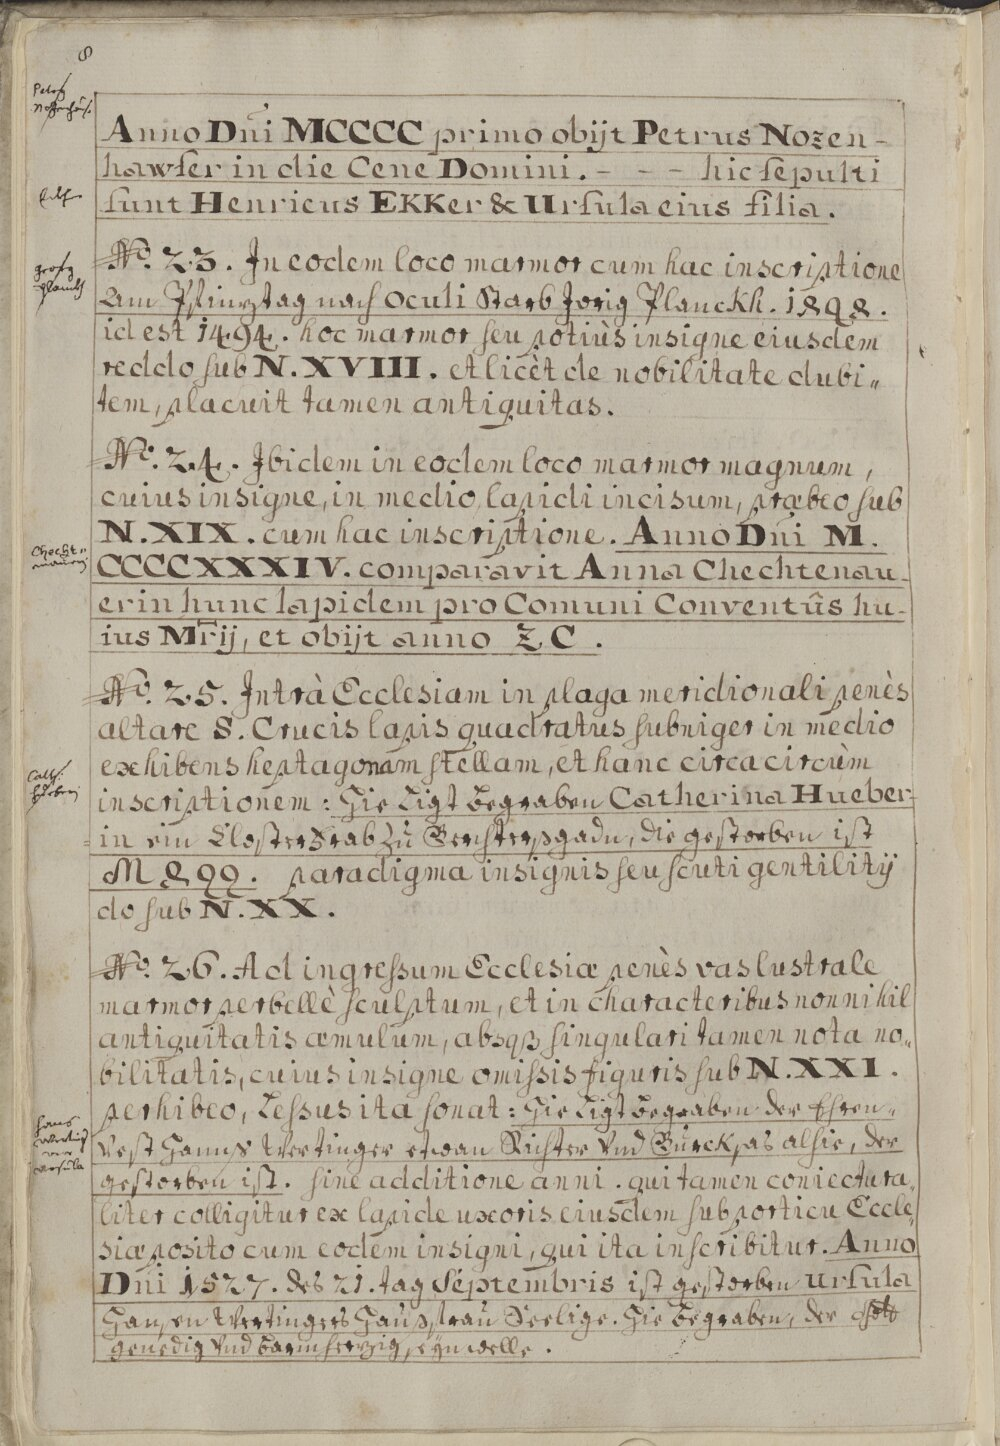 8
Anno Dnī MCCCC primo obijt Petrus Nozen-
hawser in die Cene Domini. - - - hic sepulti
sunt Henricus Ekker & Ursula eius filia.
Nº. 23. In eodem loco marmor cum hac inscriptione
Am Pfinztag nach Oculi Starb Jorig Planckh. 1898.
id est 1494. hoc marmor seu potiùs insigne eiusdem
reddo sub N. XVIII. et licèt de nobilitate dubi„
tem, placuit tamen antiquitas.
Nº. 24. Ibidem in eodem loco marmor magnum,
cuius insigne, in medio lapidi incisum, præbeo sub
N. XIX. cum hac inscriptione. Anno Dnī M.
CCCCXXXIV. comparavit Anna Chechtenau-
erin hunc lapidem pro Comuni Conventûs hu-
ius Mr̄ij, et obijt anno Z C.
Nº. 25. Intrà Ecclesiam in plaga meridionali penès
altare S. Crucis lapis quadratus subniger in medio
exhibens heptagonam stellam, et hanc circa circùm
inscriptionem: Hie Ligt Begraben Catherina Hueber-
in ein Closterfrab zu Berchtersgadn, die gestorben ist
M 899. paradigma insignis seu scuti gentilitij
do sub N. XX.
Nº. 26. Ad ingressum Ecclesiæ penès vas lustrale
marmor perbellè sculptum, et in characteribus nonnihil
antiquitatis æmulum, absqß singulari tamen nota no„
bilitatis, cuius insigne omissis figuris sub N. XXI.
perhibeo, Lessus ita sonat: Hie Ligt Begraben der Ehren„
vest Hanns Wertinger etwan Richter Vnd Burckpas alhie, der
gestorben ist. sine additione anni. qui tamen coniectura„
liter colligitur ex lapide uxoris eiusdem sub porticu Eccle„
siæ posito cum eodem insigni, qui ita inscribitur. Anno
Dnī 1527. des 21. tag Septembris ist gestorben Ursula
Hansen Wertingers Haussfrau Seelige. Hie Begraben, der Gott
genedig Vnd Barmherzig seyn welle.
Hans
Ursula